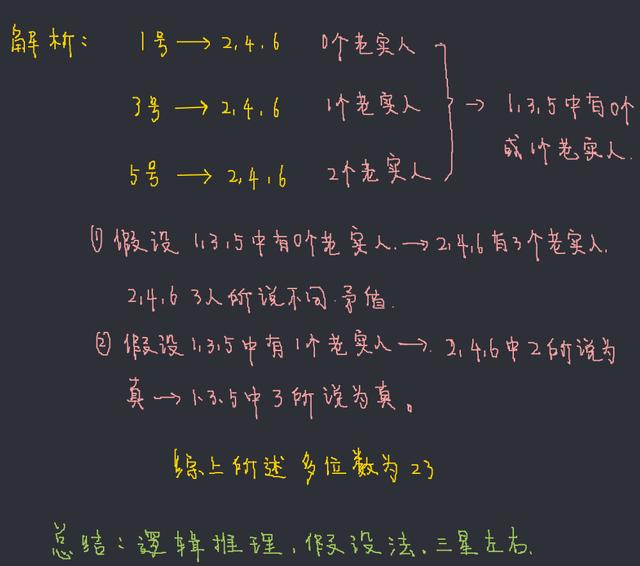 解析: 1号→2,4,6 0个老实人
3号→2,4,6 1个老实人 → 1,3,5中有0个
或1个老实人.
5号→2,4,6 2个老实人
① 假设 1,3,5中有0个老实人.→2,4,6有3个老实人.
2,4,6 3人所说不同.矛盾.
② 假设1,3,5中有1个老实人→. 2,4,6中2所说为
真→1.3.5中3所说为真。
综上所述多位数为23
总结:逻辑推理,假设法.三星左右.